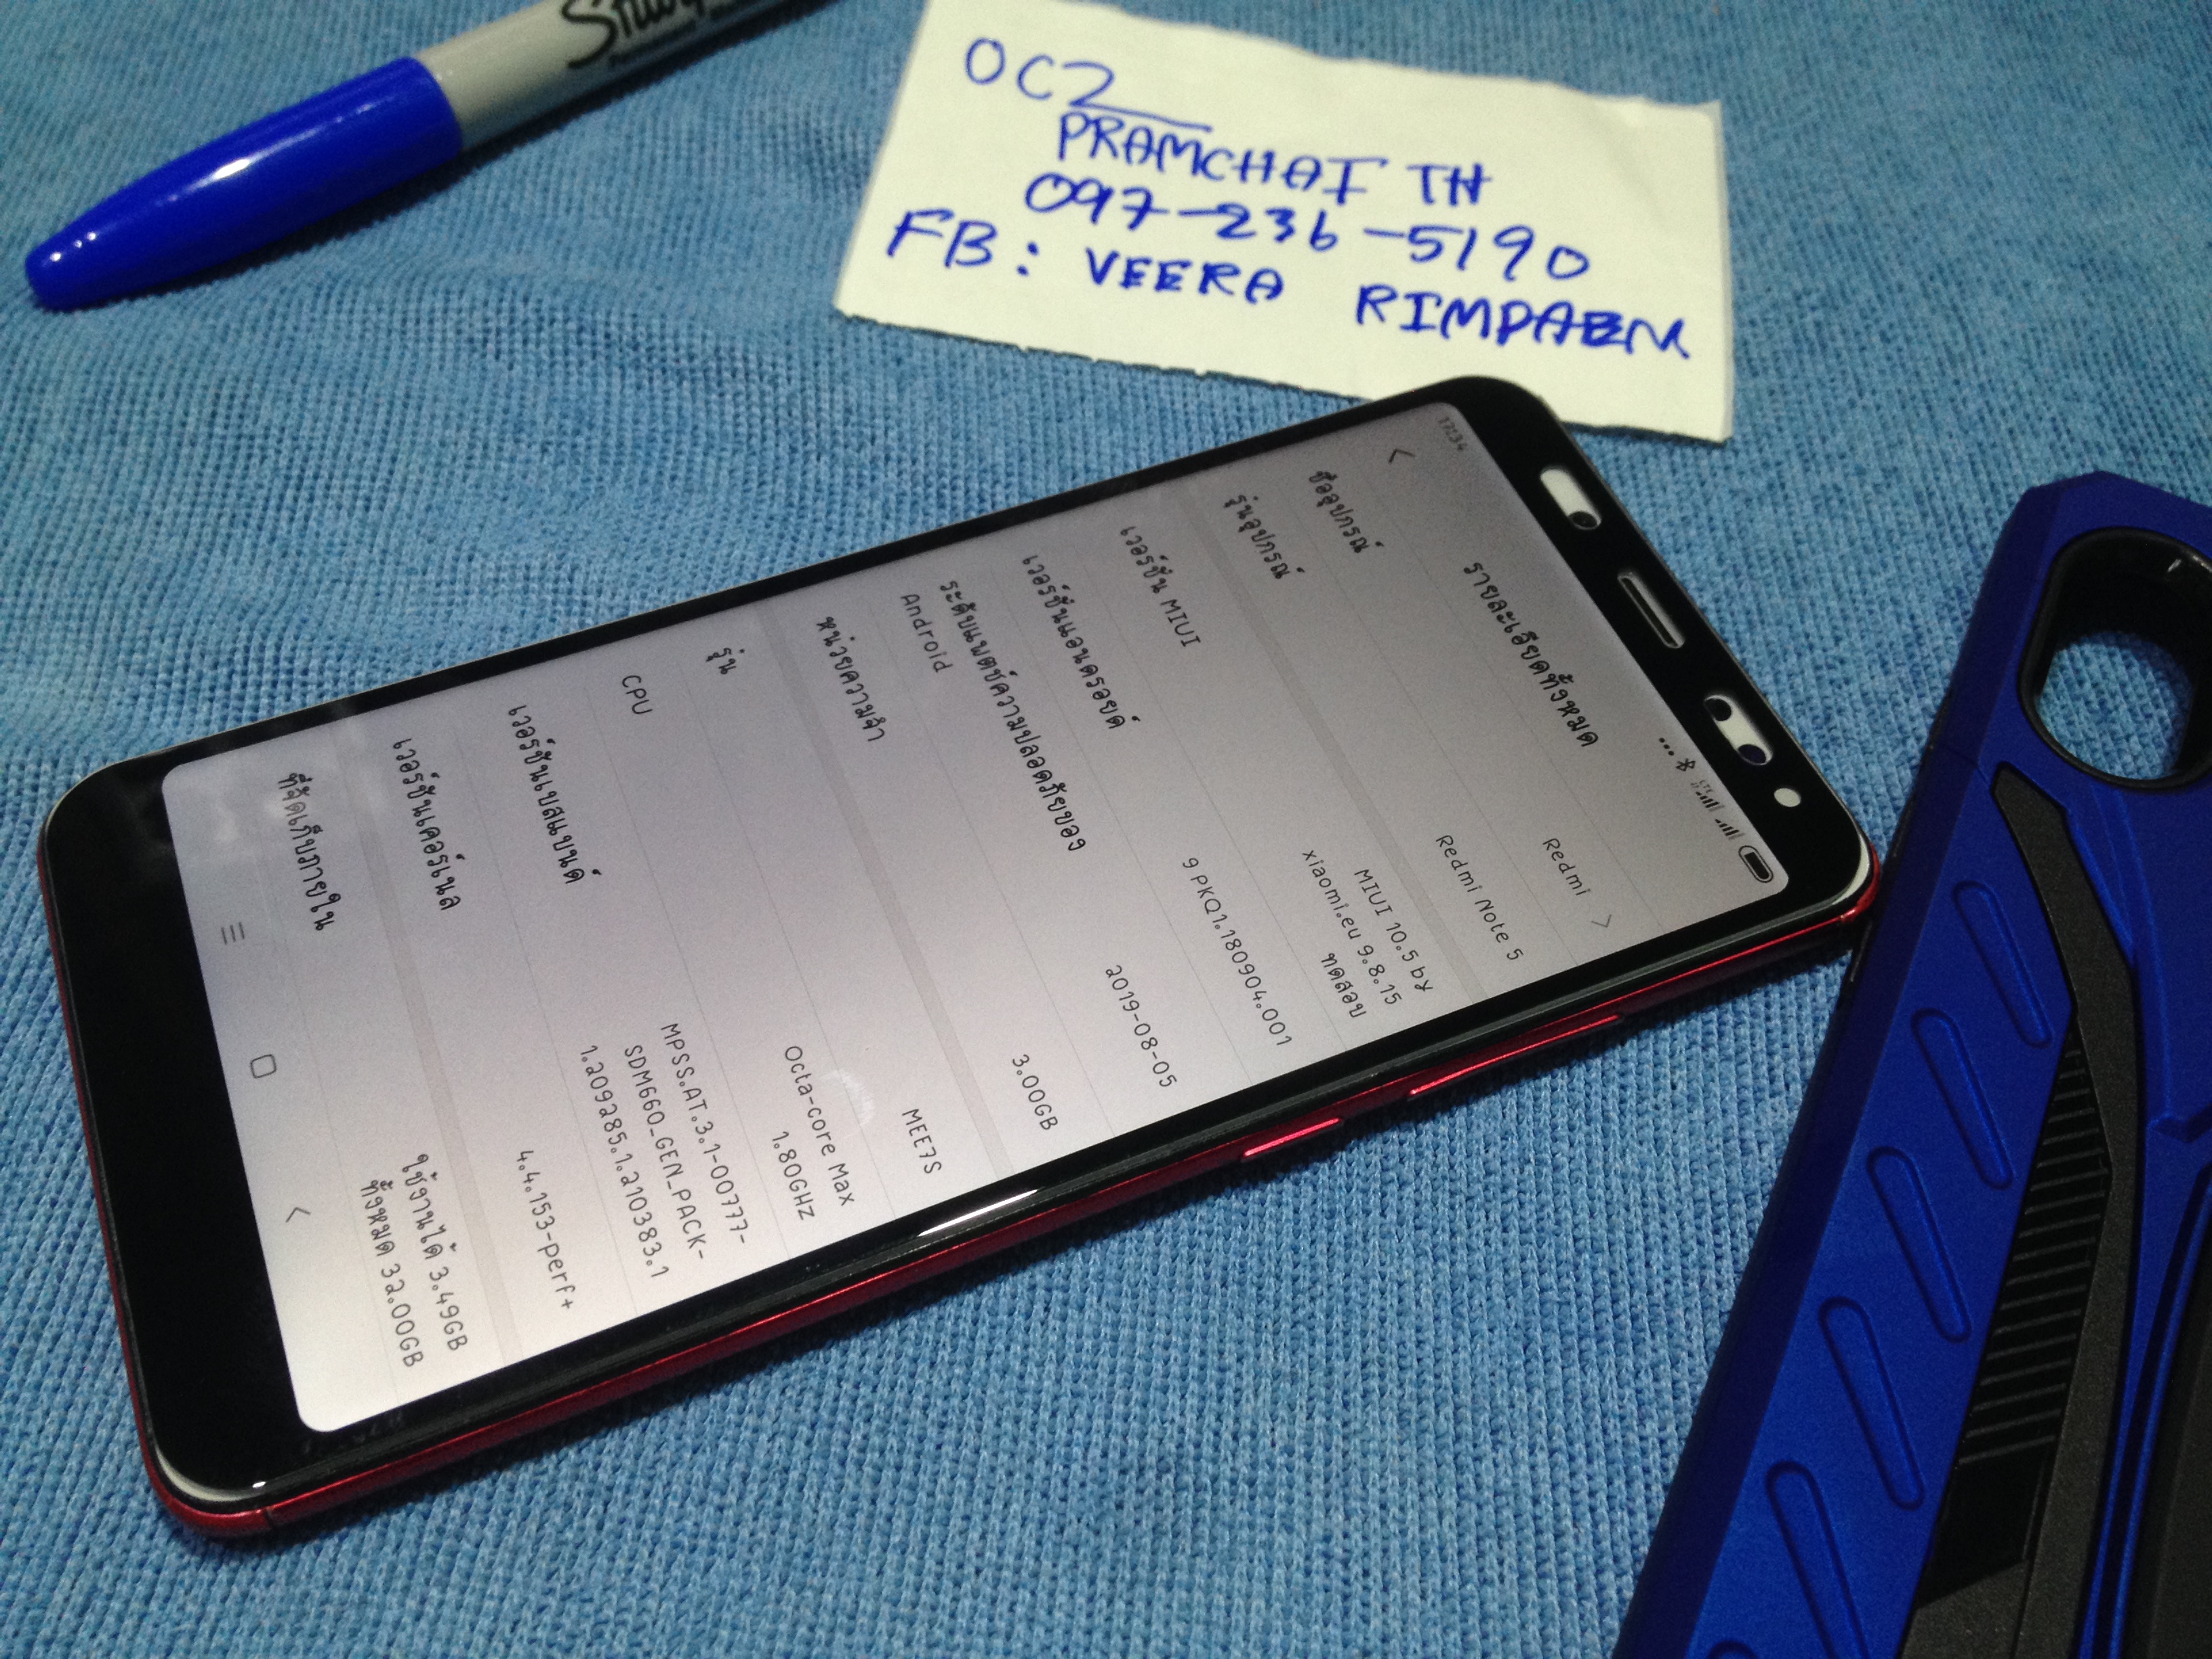 Sharpie
OCZ
PRAMCHAI TH
097-236-5190
FB: VEERA RIMPAEN
17:34
รายละเอียดทั้งหมด
ชื่ออุปกรณ์ Redmi
รุ่นอุปกรณ์ Redmi Note 5
เวอร์ชัน MIUI MIUI 10.5 by
xiaomi.eu 9.8.15
ทดสอบ
เวอร์ชันแอนดรอยด์ 9 PKQ1.180904.001
ระดับแพตช์ความปลอดภัยของ 2019-08-05
Android
หน่วยความจำ 3.00GB
รุ่น MEE7S
CPU Octa-core Max
1.80GHz
เวอร์ชันเบสแบนด์ MPSS.AT.3.1-00777-
SDM660_GEN_PACK-
1.209285.1.210383.1
เวอร์ชันเคอร์เนล 4.4.153-perf+
ที่จัดเก็บภายใน ใช้งานได้ 3.49GB
ทั้งหมด 32.00GB